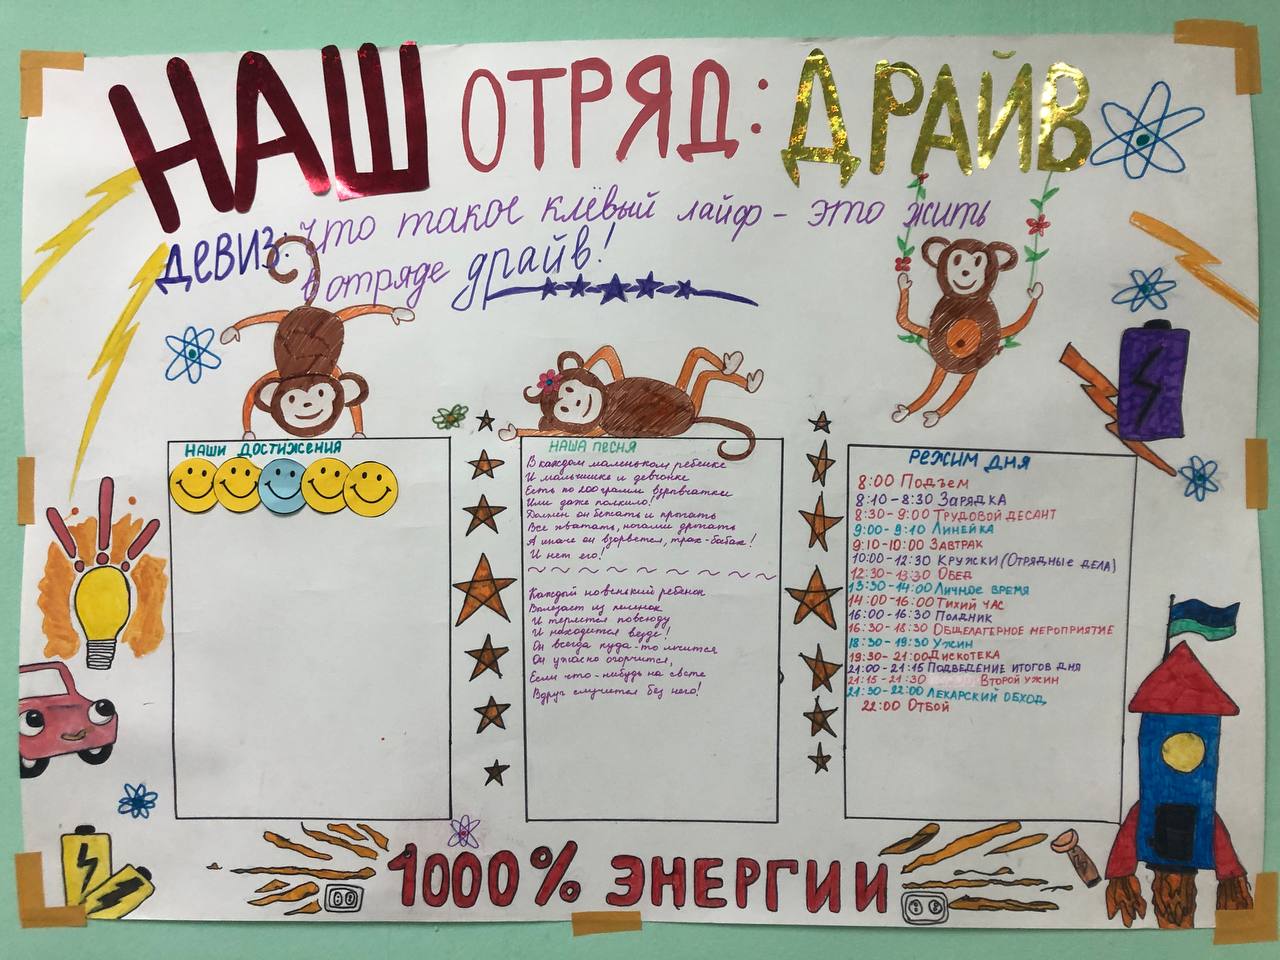 НАШ ОТРЯД: ДРАЙВ
ДЕВИЗ: Что такое клёвый лайф - это жить
в отряде драйв!
НАШИ ДОСТИЖЕНИЯ
НАША ПЕСНЯ
В каждом маленьком ребенке
И мальчишке и девчонке
Есть по 200 грамм взрывчатки
Или даже полкило!
Должен он бежать и прыгать
Все хватать, ногами дрыгать
А иначе он взорвется, трах-бабах!
И нет его!
Каждый новенький ребенок
Вылезает из пеленок
И теряется повсюду
И находится везде!
Он всегда куда-то мчится
Он ужасно огорчится,
Если что-нибудь на свете
Вдруг случится без него!
РЕЖИМ ДНЯ
8:00 Подъем
8:10-8:30 Зарядка
8:30-9:00 Трудовой десант
9:00-9:10 Линейка
9:10-10:00 Завтрак
10:00-12:30 Кружки (Отрядные дела)
12:30-13:30 Обед
13:30-14:00 Личное время
14:00-16:00 Тихий час
16:00-16:30 Полдник
16:30-18:30 Общелагерное мероприятие
18:30-19:30 Ужин
19:30-21:00 Дискотека
21:00-21:15 Подведение итогов дня
21:15-21:30 Второй ужин
21:30-22:00 Лекарский обход
22:00 Отбой
1000% ЭНЕРГИИ